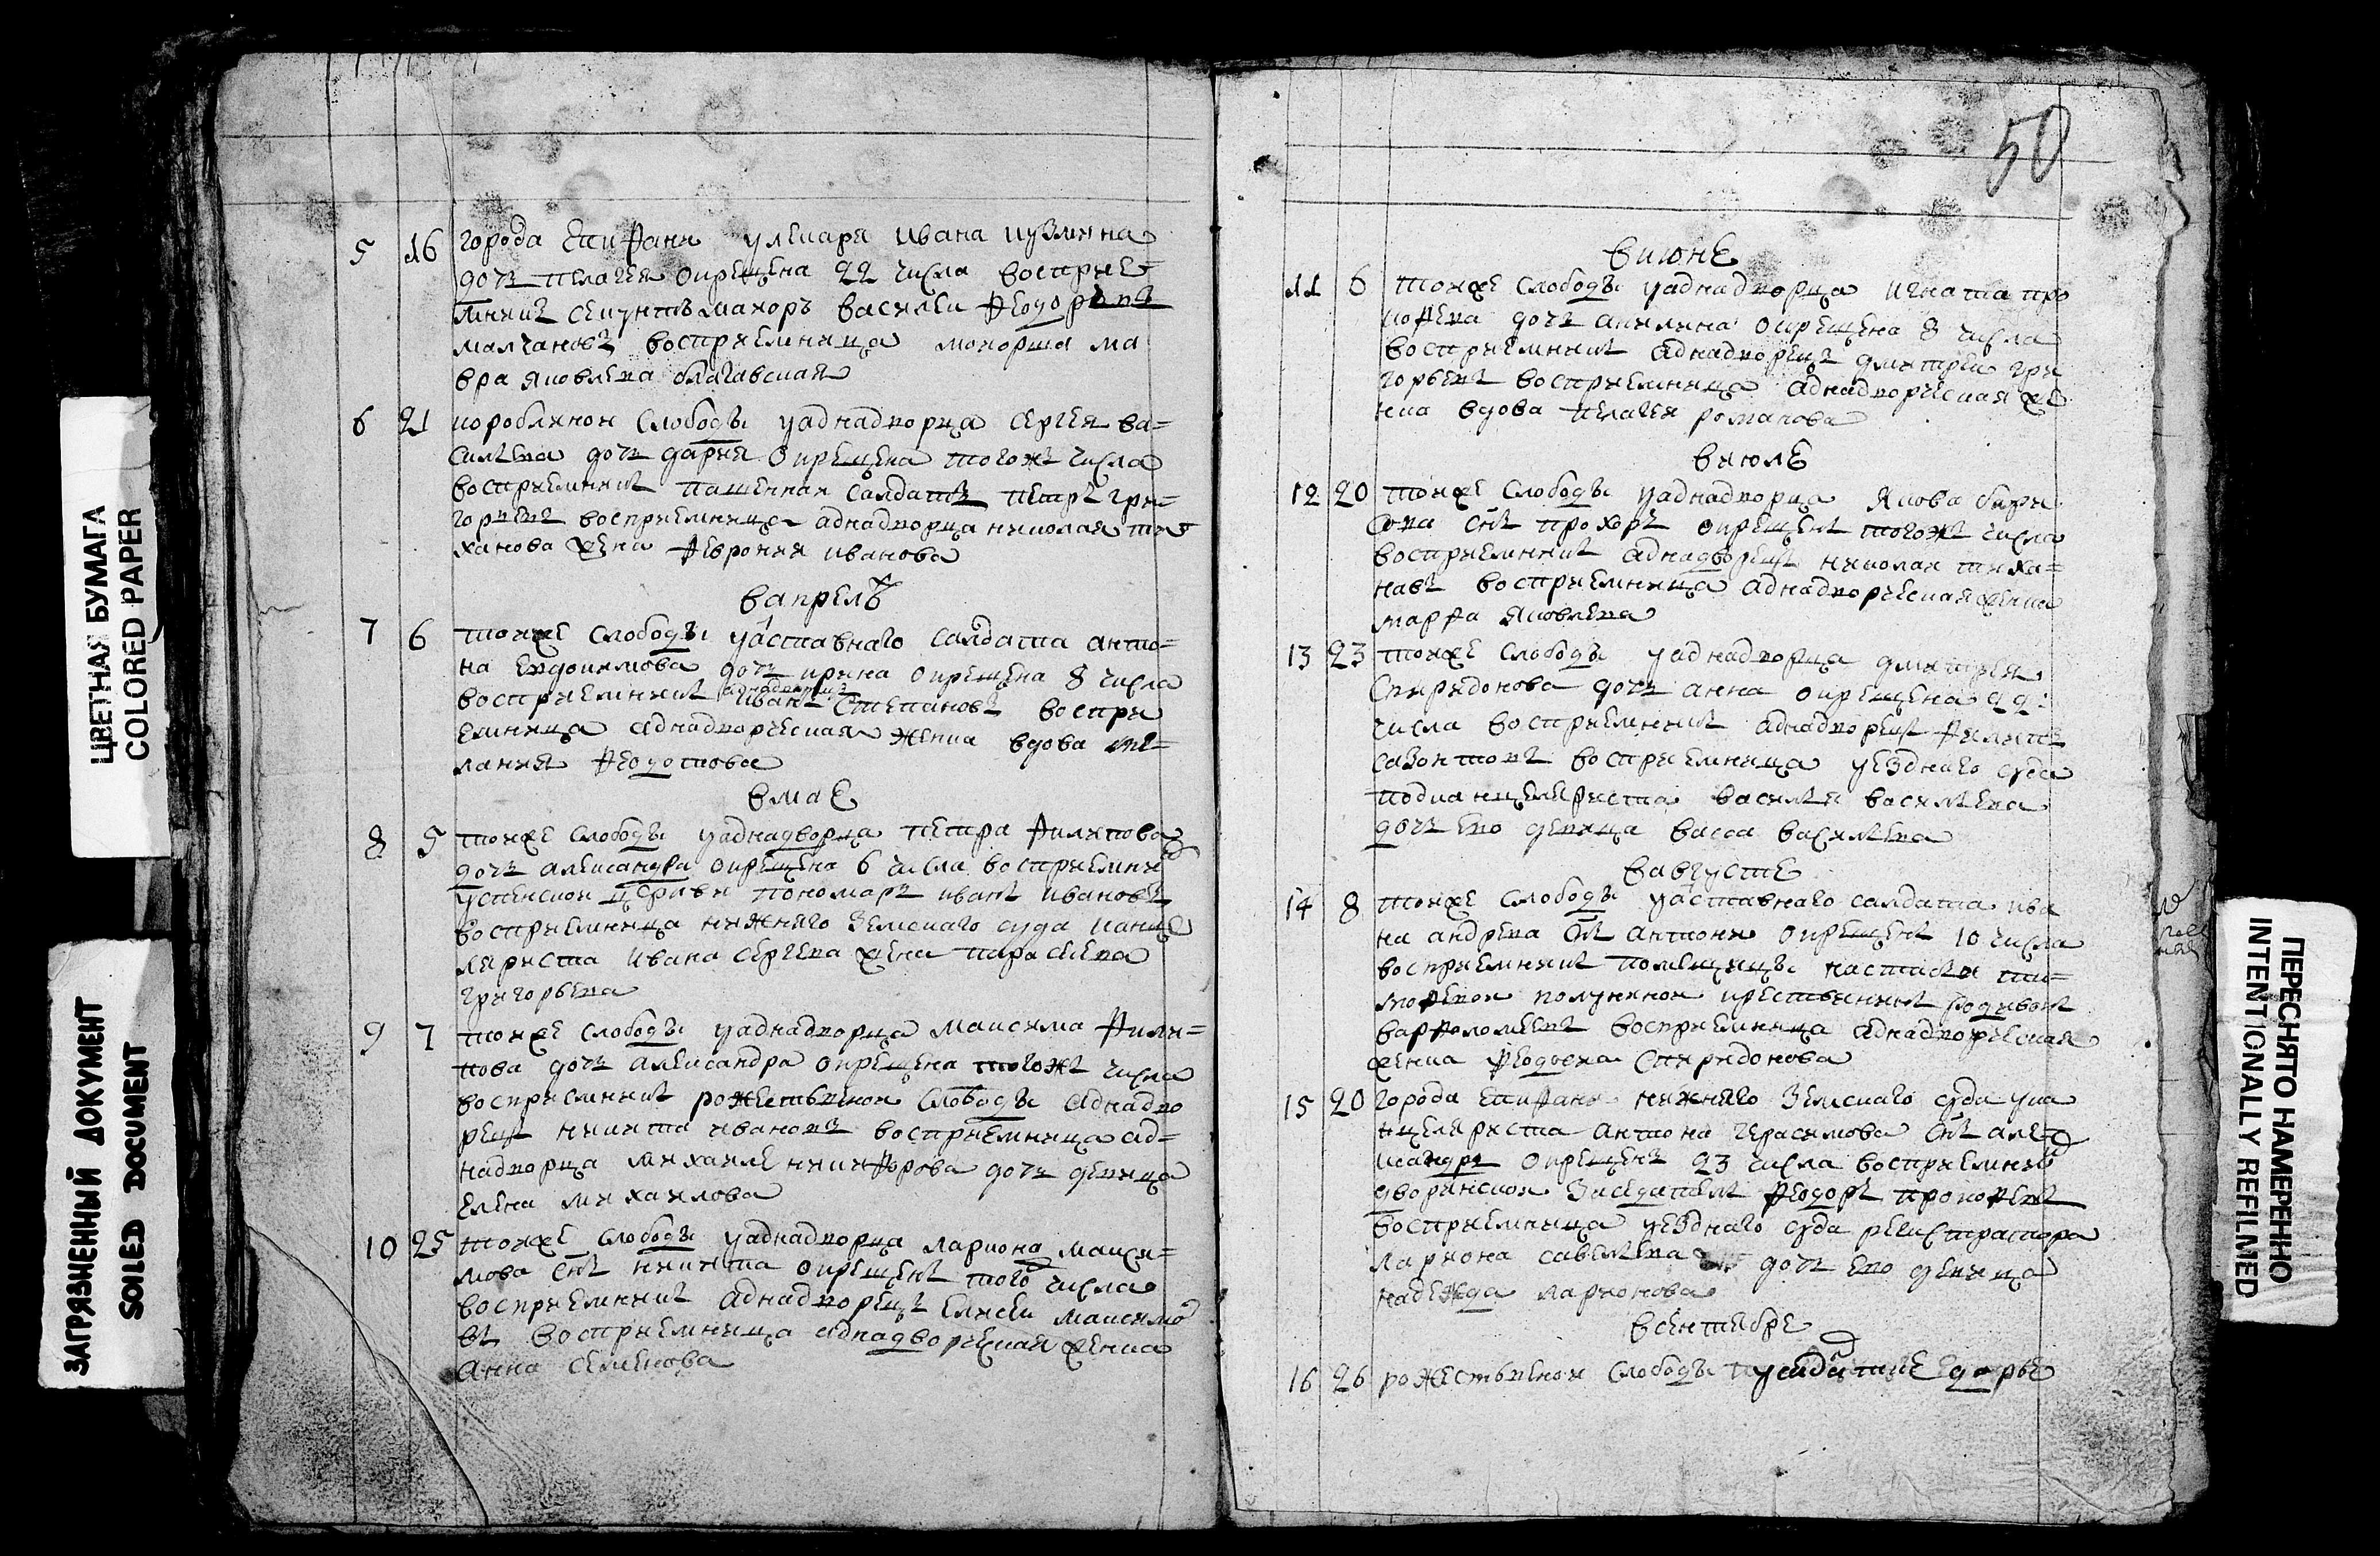 5 16 города Епифани улекаря ивана кузмина
дочь пелагея окрещена 22 числа восприе=
мникъ секунтъ маиоръ василеи Феодоровъ
малчановъ восприемница маиорша ма
вра яковлева
6 21 нороблинои слободы уаднадворца сергея ва=
силева дочь дарья окрещена тогожъ числа
восприемникъ пашеннаи салдатъ петръ гри=
горьевъ восприемница аднадворца николая ти
ханова жена Феврония иванова
вапреле
7 6 тоиже слободы уаставнаго салдата анто=
на евдокимова дочь ирина окрещена 8 числа
восприемникъ аднадворецъ иванъ степановъ воспри
емница аднадворческая женка вдова ме=
лания Феодотова
вмае
8 5 тоиже слободы уаднадворца петра Филипова
дочь александра окрещена 6 числа восприемни
успенскои церкви пономарь иванъ ивановъ
восприемница нижняго земскаго суда канце
ляриста ивана сергева жена параскева
григорьева
9 7 тоиже слободы уаднадворца максима Фили=
пова дочь александра окрещена тогожъ числа
восприемникъ рожествѣнои слободы аднадво
рецъ никита ивановъ восприемница ад=
надворца михаиле никифорова дочь девица
елена михаилова
10 25 тоиже слободы уаднадворца лариона макси=
мова снъ никита окрещенъ того числа
восприемникъ аднадворецъ елисеи максимо
въ восприемница аднадворческая женка
анна семенова
50
виюне
11 6 тоиже слободы уаднадворца игната про
кофева дочь акилина окрещена 8 числа
восприемникъ аднадворецъ дмитреи гри
горьевъ восприемница аднадворческая же
нка вдова пелагея романова
виюле
12 20 тоиже слободы уаднадворца якова бори
сова снъ прохоръ окрещенъ тогожъ числа
восприемникъ аднадворецъ николаи тиха=
навъ восприемница аднадворческая женка
марфа яковлева
13 23 тоиже слободы уаднадворца дмитрея
спиридонова дочь анна окрещена 22:
числа восприемникъ аднадворецъ Филипъ
сазонтовъ восприемница уезднаго суда
подканцеляриста василья василева
дочь ево девица васса василева
вавгусте
14 8 тоиже слободы уаставнаго салдата ива
на андрева снъ антони окрещенъ 10 числа
восприемникъ помещицы настасьи ти=
мофевои полунинои крестьянинъ родивонъ
варфоломеевъ восприемница аднадворческая
женка Феодосия спиридонова
15 20 города епифани нижняго земскаго суда ука
нцеляриста антона герасимова снъ алек
исандръ окрещенъ 23 числа восприемникъ
дворянскои заседатель Феодоръ прокофевъ
восприемница уезднаго суда регистратора
лариона савельева дочь ево девица
надежда ларионова
всентябре
16 26 рожествѣнои слободы
ЦВЕТНАЯ БУМАГА
COLORED PAPER
ЗАГРЯЗНЕННЫЙ ДОКУМЕНТ
SOILED DOCUMENT
ПЕРЕСНЯТО НАМЕРЕННО
INTENTIONALLY REFILMED